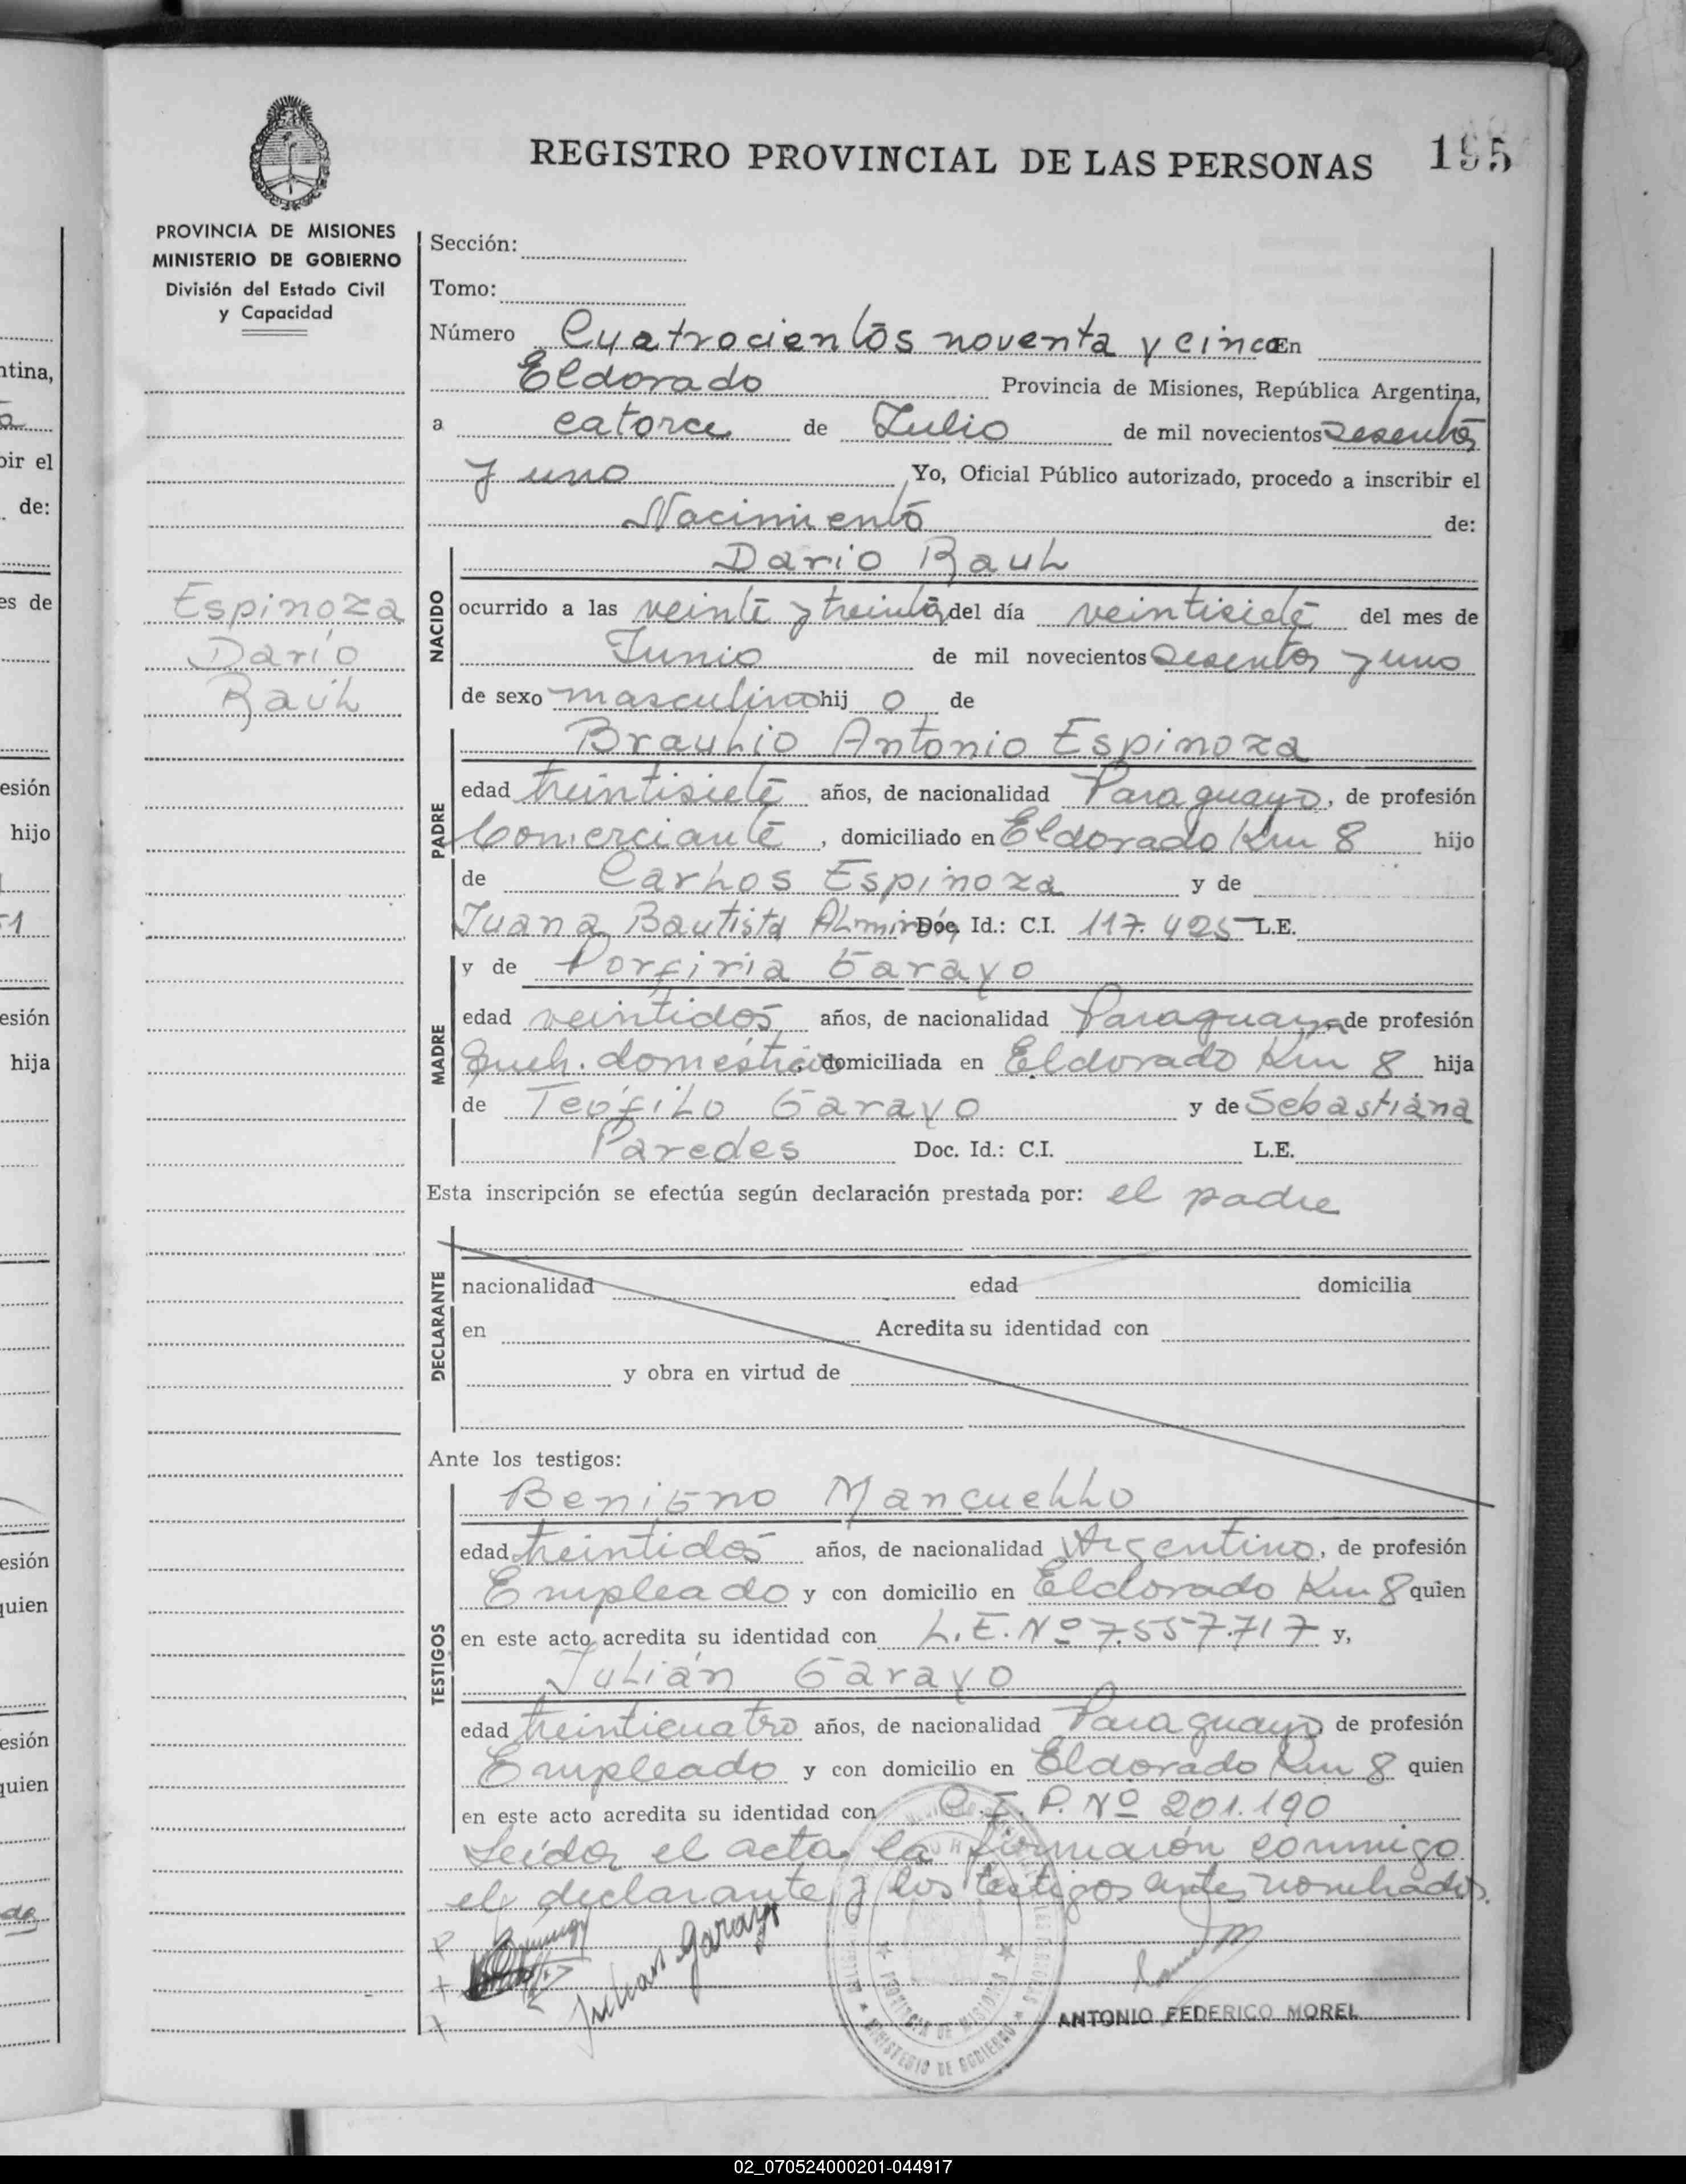 REGISTRO PROVINCIAL DE LAS PERSONAS 195
PROVINCIA DE MISIONES
MINISTERIO DE GOBIERNO
División del Estado Civil
y Capacidad
Espinoza
Darío
Raúl
Sección:
Tomo:
Número Cuatrocientos noventa y cinco En
Eldorado Provincia de Misiones, República Argentina,
a catorce de Julio de mil novecientos sesenta
y uno Yo, Oficial Público autorizado, procedo a inscribir el
Nacimiento de:
NACIDO
Dario Raul
ocurrido a las veinte y treinta, del día veintisiete del mes de
Junio de mil novecientos sesenta y uno
de sexo masculino hij o de
PADRE
Braulio Antonio Espinoza
edad treintisiete años, de nacionalidad Paraguayo, de profesión
Comerciante, domiciliado en Eldorado Km 8 hijo
de Carlos Espinoza y de
Juana Bautista Almirón, Doc. Id.: C.I. 117.425 L.E.
MADRE
y de Porfiria Garayo
edad veintidos años, de nacionalidad Paraguaya de profesión
Queh. domésticos domiciliada en Eldorado Km 8 hija
de Teófilo Garayo y de Sebastiana
Paredes Doc. Id.: C.I. L.E.
Esta inscripción se efectúa según declaración prestada por: el padre
DECLARANTE
nacionalidad edad domicilia
en Acredita su identidad con
y obra en virtud de
Ante los testigos:
TESTIGOS
Benigno Mancuello
edad treintidos años, de nacionalidad Argentino, de profesión
Empleado y con domicilio en Eldorado Km 8 quien
en este acto acredita su identidad con L.E. Nº 7.557.717 y,
Julián Garayo
edad treinticuatro años, de nacionalidad Paraguayo, de profesión
Empleado y con domicilio en Eldorado Km 8 quien
en este acto acredita su identidad con C.I.P. Nº 201.190
Leída el acta, la firmaron conmigo
el declarante y los testigos antes nombrados.
Julian Garayo
PROVINCIA DE MISIONES
MINISTERIO DE GOBIERNO
ANTONIO FEDERICO MOREL
ntina,
bir el
de:
es de
esión
hijo
esión
hija
esión
quien
esión
quien
02_070524000201-044917